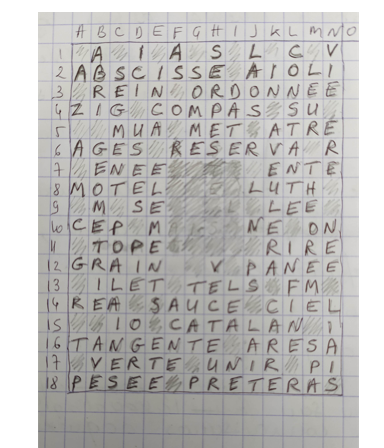 A B C D E F G H I J K L M N O
1 A I A S L C V
2 ABSCISSE AIOLI
3 REIN ORDONNEE
4 ZIG COMPAS SU
5 MUA MET ATRE
6 AGES RESERVA R
7 ENEE ENTE
8 MOTEL LUTH
9 M SE LEE
10 CEP M NE ON
11 TOPE RIRE
12 GRAIN V PANEE
13 ILET TELS FM
14 REA SAUCE CIEL
15 IO CATALAN I
16 TANGENTE ARESA
17 VERTE UNIR PI
18 PESEE PRETERAS